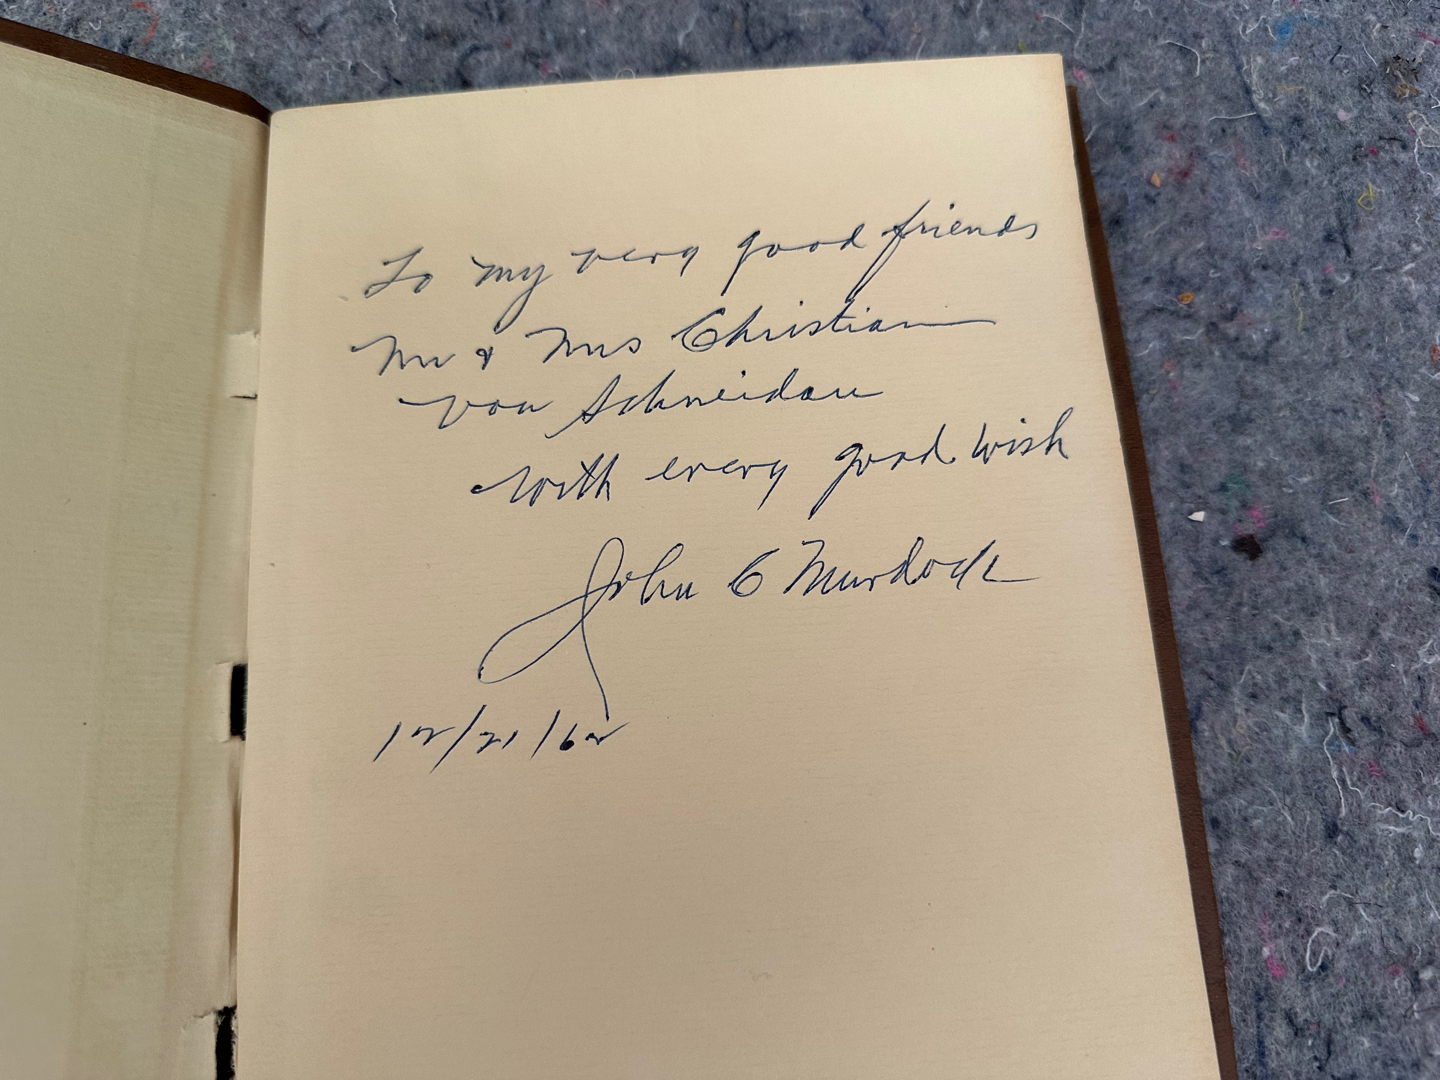 To my very good friends
Mr & Mrs Christian
von Schneidau
with every good wish
John C Murdock
12/21/62